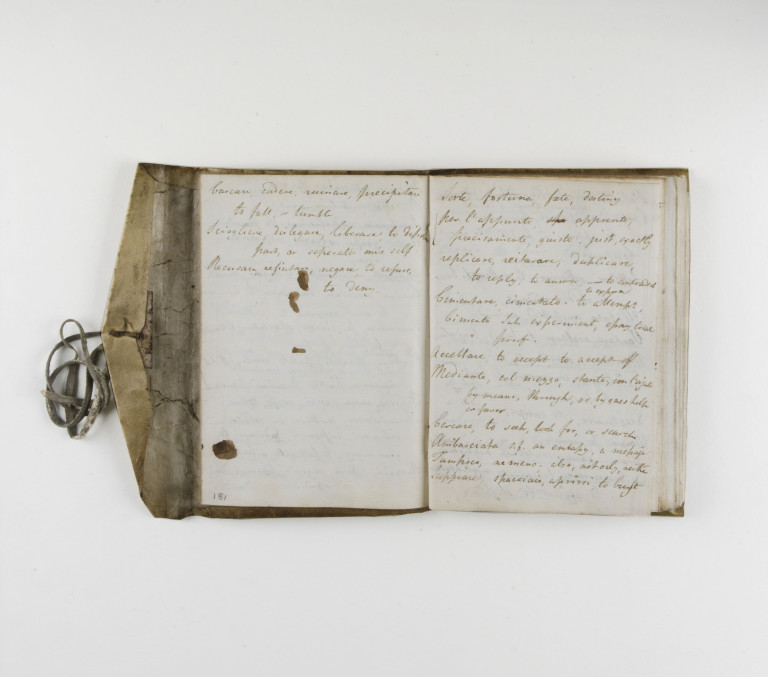 Cascare, cadere, ruinare, precipitare
to fall, – tumble
Sciogliere, dislegare, liberare, to
free, or seperate one's self
Recusare, refiutare, negare, to refuse,
to deny
181
Sorte, fortuna, fate, destiny
Per l'appunto appunto,
precisamente, giusto, just, exactly
replicare, reiterare, duplicare,
to reply, to answer, – to contradict
to expose
Cimentare, cimentato. to attempt
Cimento S.M. experiment, or
proof.
Accettare to accept to accept of
Mediante, col mezzo, stante,
by means, through, or by ones help
or favor
Cercare, to seek, look for, or search
Ambasciata s.f. an embassy, a message
Tampoco, nemeno. also, not only, neither
to burst